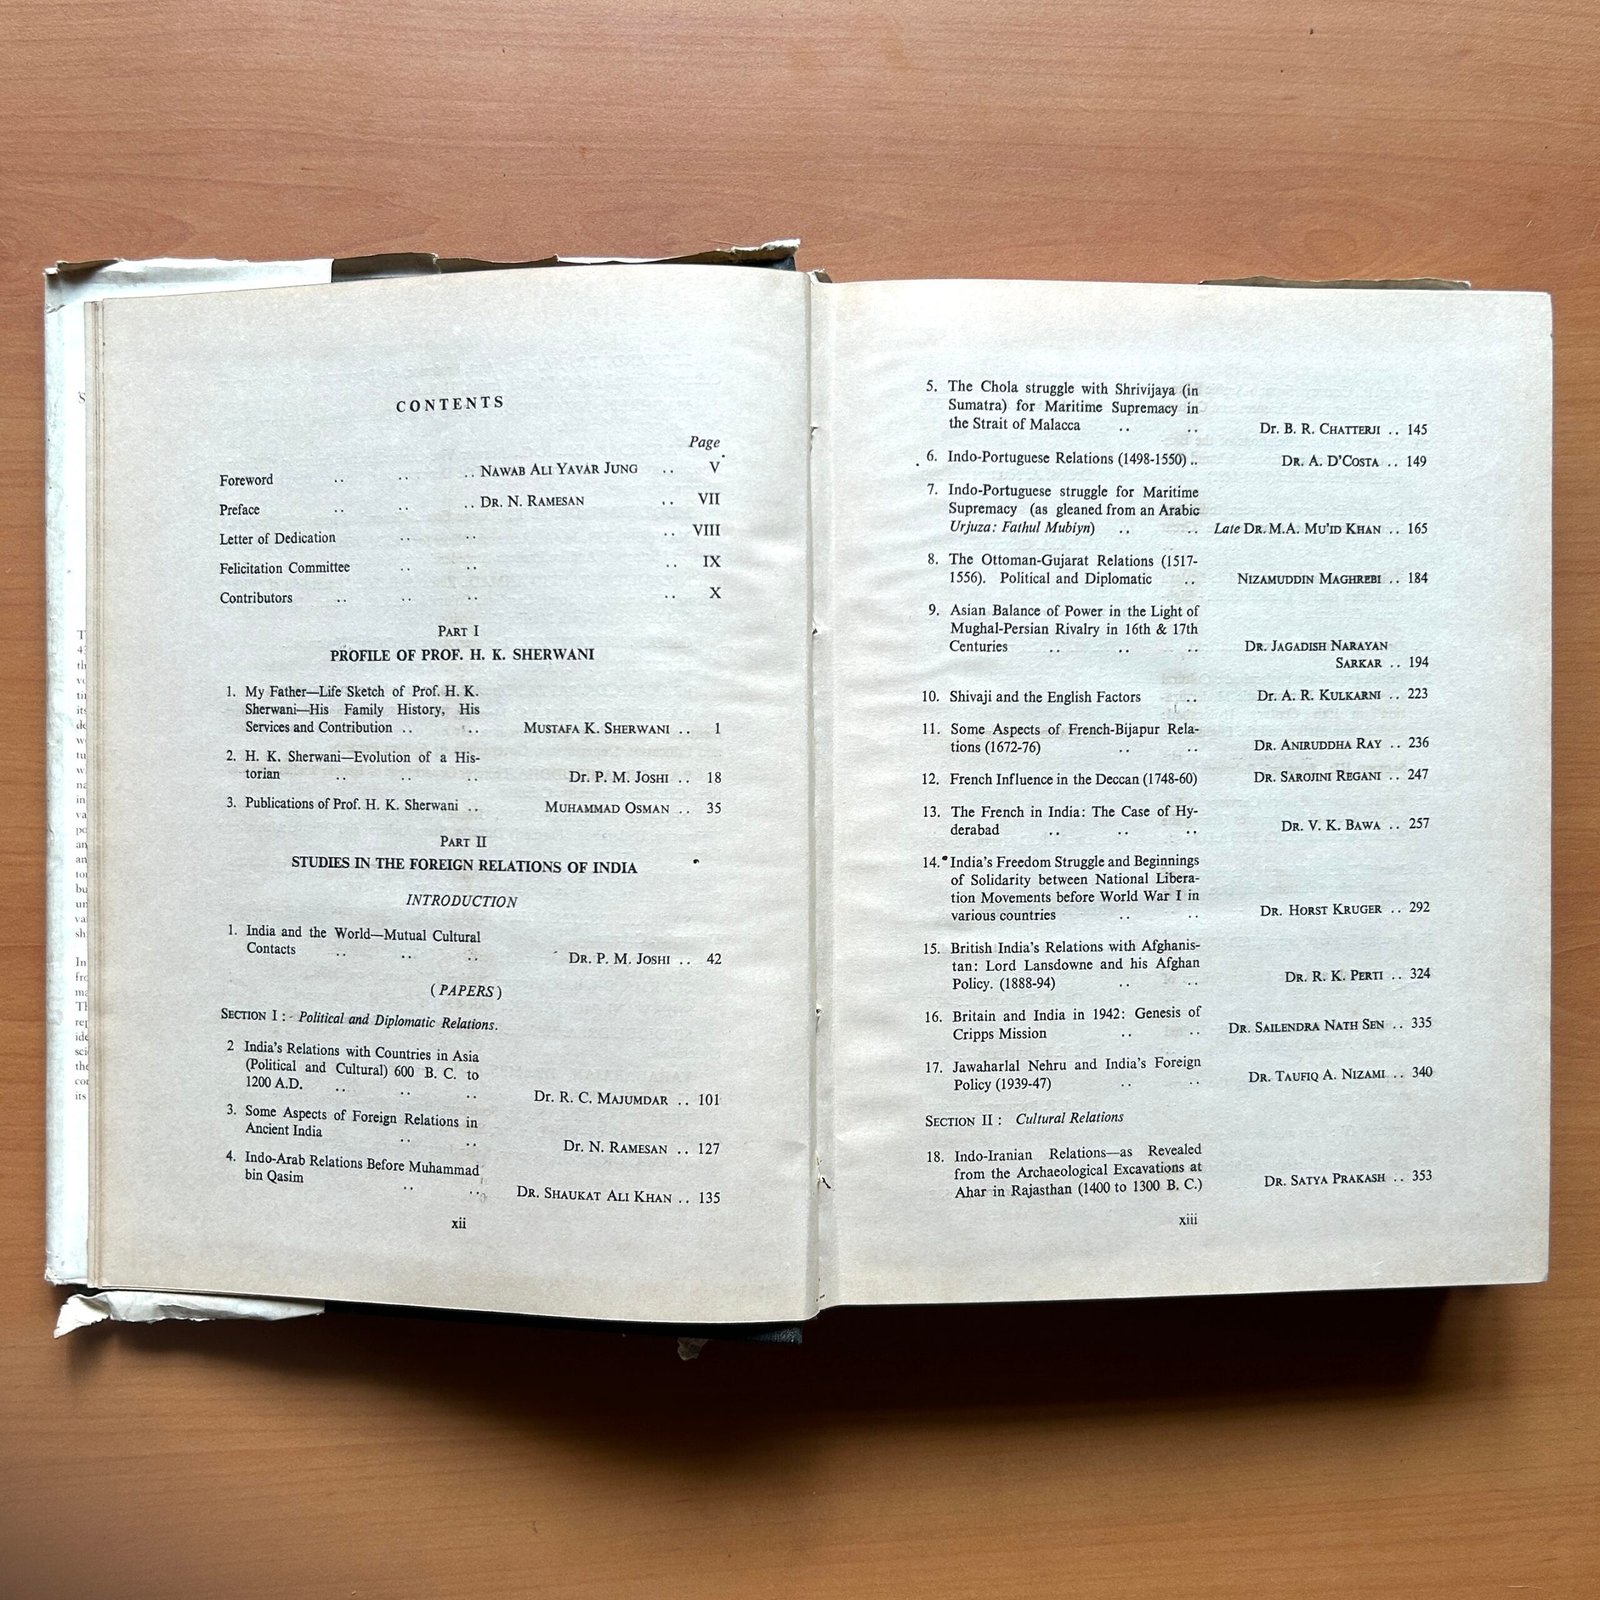 CONTENTS
Page
Foreword .. .. .. NAWAB ALI YAVAR JUNG .. V
Preface .. .. .. DR. N. RAMESAN .. VII
Letter of Dedication .. .. .. VIII
Felicitation Committee .. .. .. IX
Contributors .. .. .. .. X
PART I
PROFILE OF PROF. H. K. SHERWANI
1. My Father—Life Sketch of Prof. H. K.
Sherwani—His Family History, His
Services and Contribution .. .. MUSTAFA K. SHERWANI .. 1
2. H. K. Sherwani—Evolution of a His-
torian .. .. .. DR. P. M. JOSHI .. 18
3. Publications of Prof. H. K. Sherwani .. MUHAMMAD OSMAN .. 35
PART II
STUDIES IN THE FOREIGN RELATIONS OF INDIA
INTRODUCTION
1. India and the World—Mutual Cultural
Contacts .. .. .. DR. P. M. JOSHI .. 42
(PAPERS)
SECTION I :- Political and Diplomatic Relations.
2 India's Relations with Countries in Asia
(Political and Cultural) 600 B. C. to
1200 A.D. .. .. .. DR. R. C. MAJUMDAR .. 101
3. Some Aspects of Foreign Relations in
Ancient India .. .. DR. N. RAMESAN .. 127
4. Indo-Arab Relations Before Muhammad
bin Qasim .. .. DR. SHAUKAT ALI KHAN .. 135
xii
5. The Chola struggle with Shrivijaya (in
Sumatra) for Maritime Supremacy in
the Strait of Malacca .. .. DR. B. R. CHATTERJI .. 145
6. Indo-Portuguese Relations (1498-1550) .. DR. A. D'COSTA .. 149
7. Indo-Portuguese struggle for Maritime
Supremacy (as gleaned from an Arabic
Urjuza: Fathul Mubiyn) .. .. Late DR. M.A. MU'ID KHAN .. 165
8. The Ottoman-Gujarat Relations (1517-
1556). Political and Diplomatic .. NIZAMUDDIN MAGHREBI .. 184
9. Asian Balance of Power in the Light of
Mughal-Persian Rivalry in 16th & 17th
Centuries .. .. .. DR. JAGADISH NARAYAN
SARKAR .. 194
10. Shivaji and the English Factors .. DR. A. R. KULKARNI .. 223
11. Some Aspects of French-Bijapur Rela-
tions (1672-76) .. .. DR. ANIRUDDHA RAY .. 236
12. French Influence in the Deccan (1748-60) DR. SAROJINI REGANI .. 247
13. The French in India: The Case of Hy-
derabad .. .. .. DR. V. K. BAWA .. 257
14. India's Freedom Struggle and Beginnings
of Solidarity between National Libera-
tion Movements before World War I in
various countries .. .. DR. HORST KRUGER .. 292
15. British India's Relations with Afghanis-
tan: Lord Lansdowne and his Afghan
Policy. (1888-94) .. .. DR. R. K. PERTI .. 324
16. Britain and India in 1942: Genesis of
Cripps Mission .. .. DR. SAILENDRA NATH SEN .. 335
17. Jawaharlal Nehru and India's Foreign
Policy (1939-47) .. .. DR. TAUFIQ A. NIZAMI .. 340
SECTION II : Cultural Relations
18. Indo-Iranian Relations—as Revealed
from the Archaeological Excavations at
Ahar in Rajasthan (1400 to 1300 B. C.) DR. SATYA PRAKASH .. 353
xiii